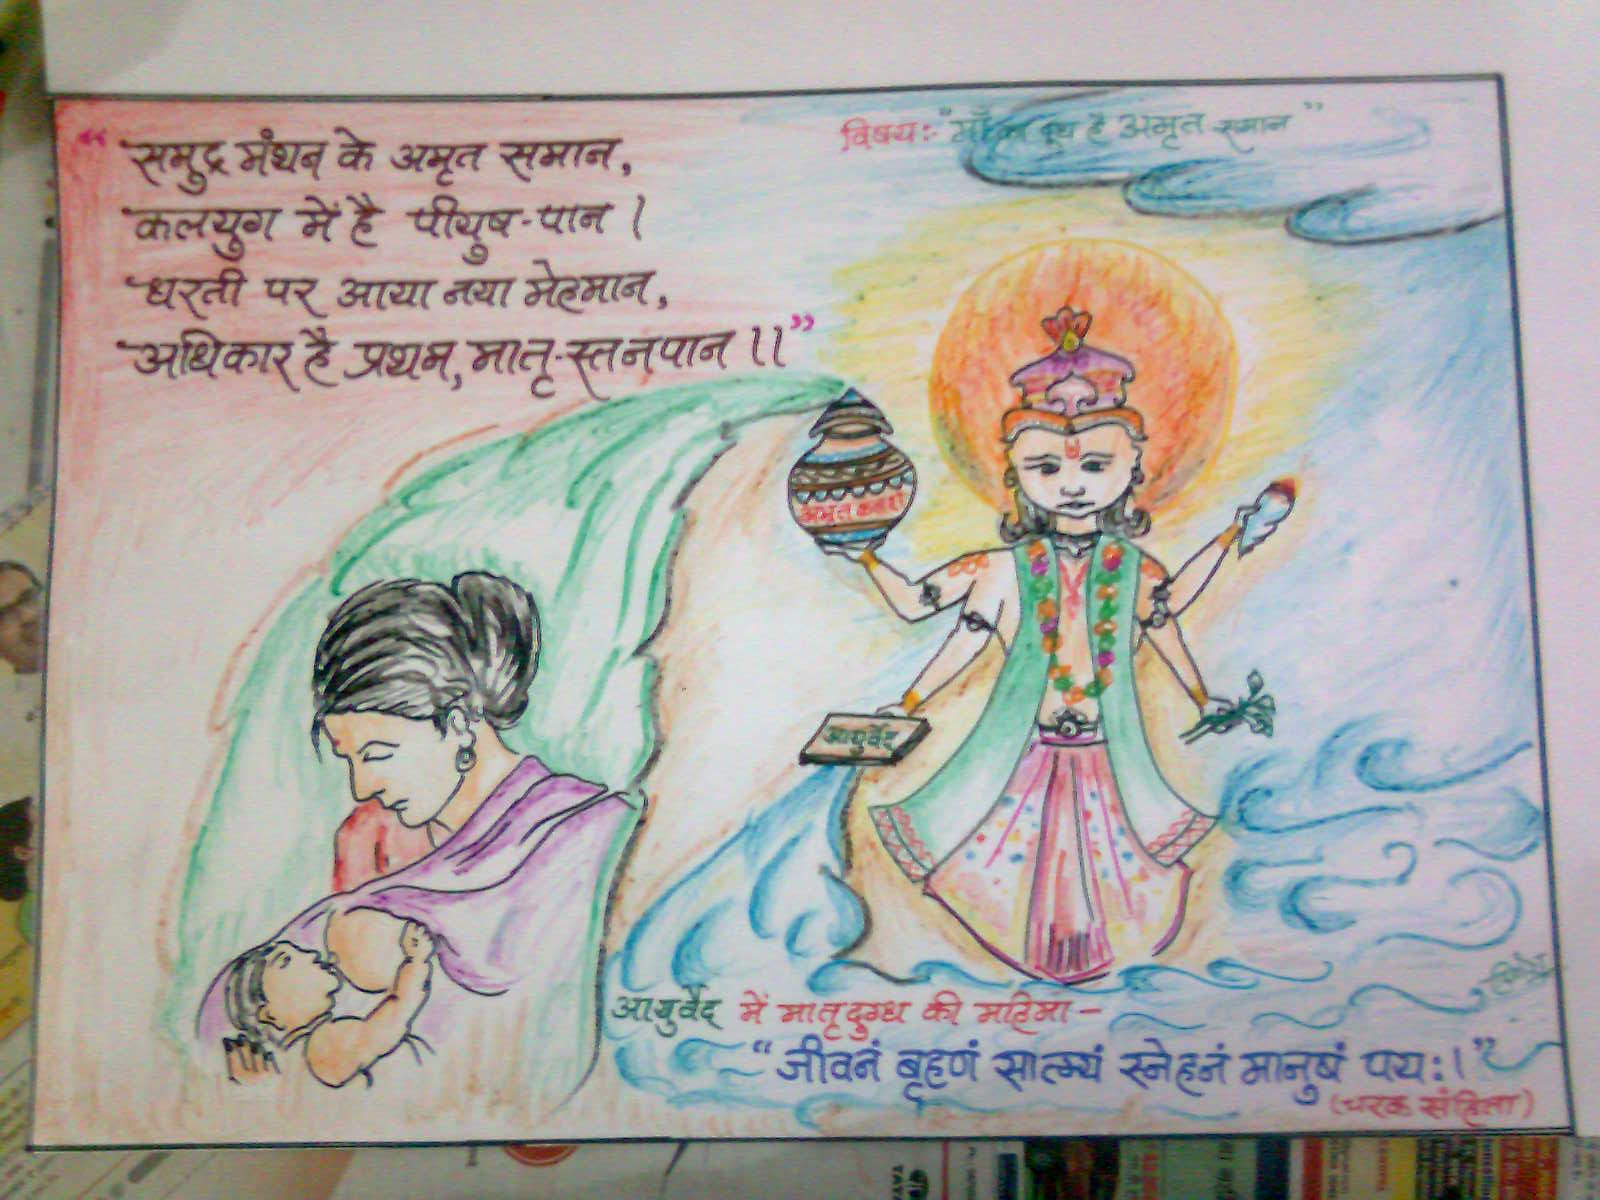 विषय:- "माँ का दूध है अमृत समान"
"समुद्र मंथन के अमृत समान,
कलयुग में है पीयुष-पान ।
धरती पर आया नया मेहमान,
अधिकार है प्रथम, मातृ-स्तनपान ।।"
अमृत कलश
आयुर्वेद
आयुर्वेद में मातृदुग्ध की महिमा -
"जीवनं बृहणं सात्म्यं स्नेहनं मानुषं पय:।"
(चरक संहिता)